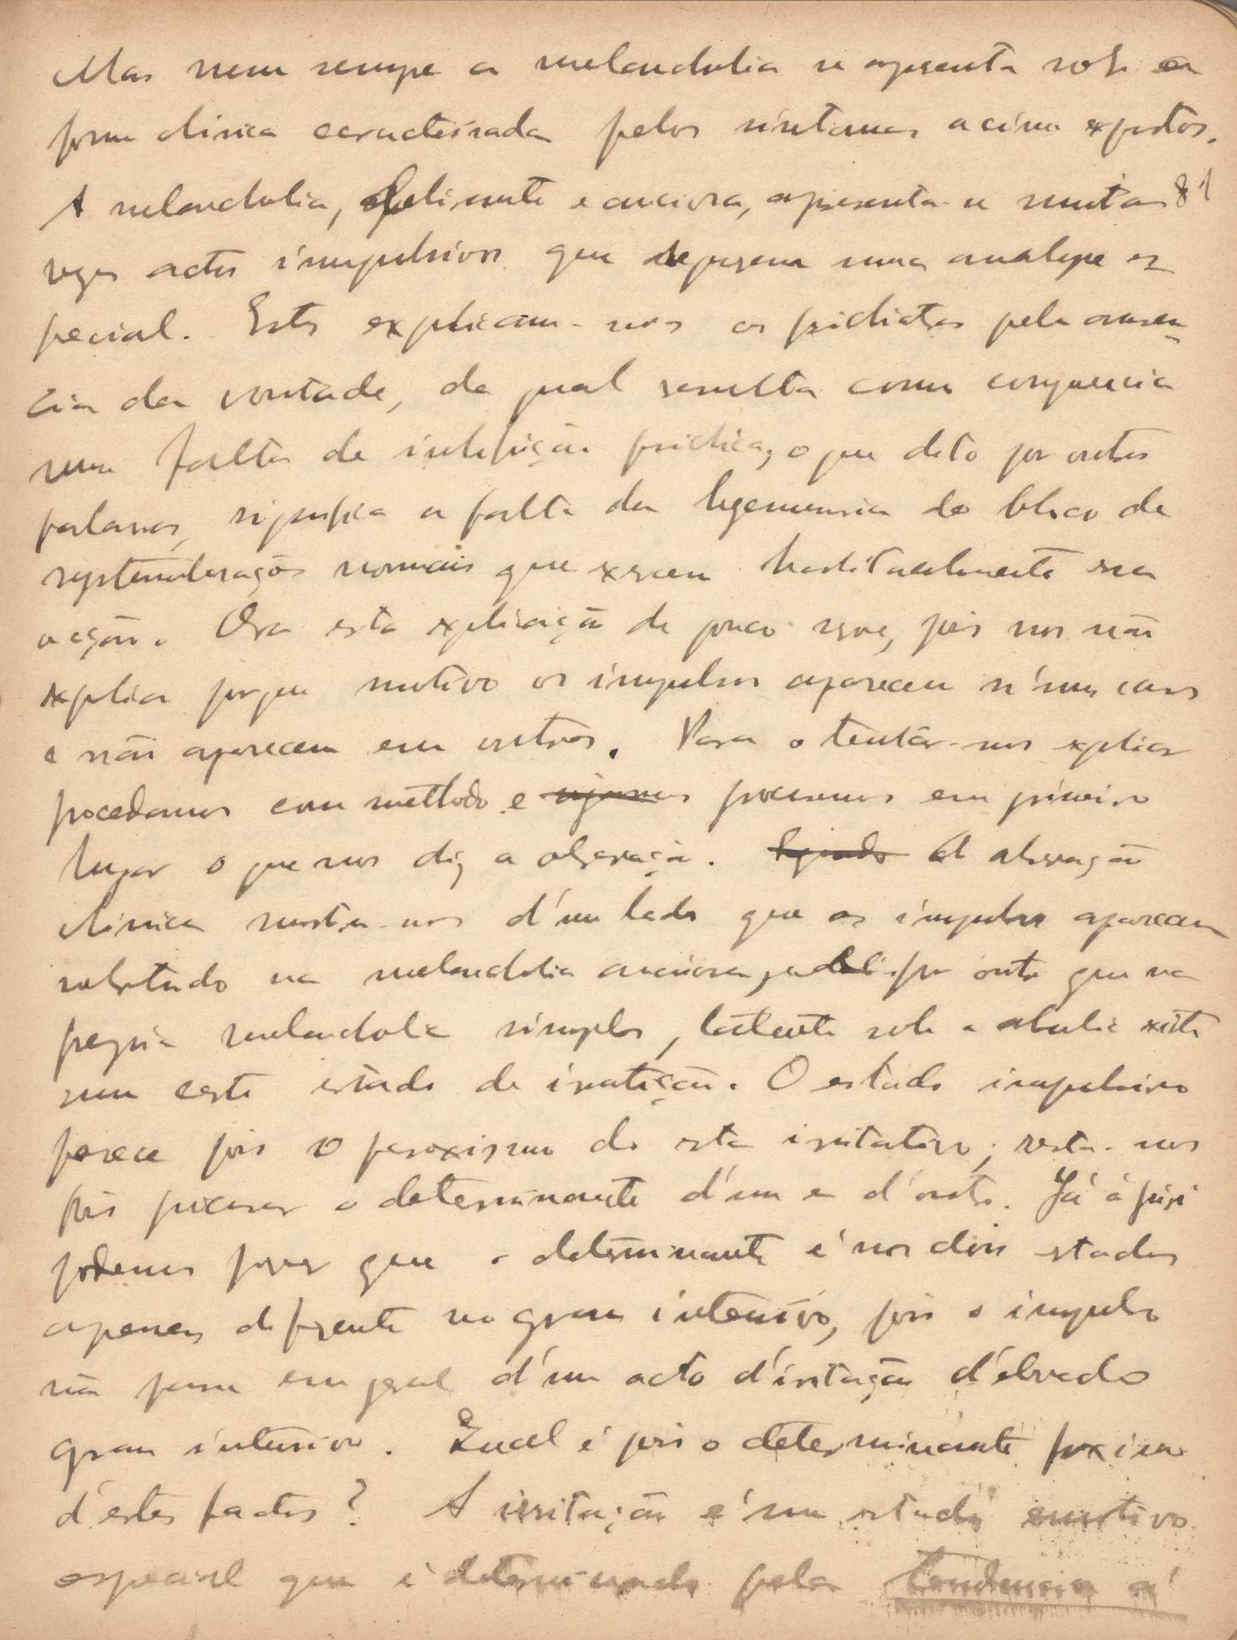 Mas nem sempre a melancholia se apresenta sob a
forma clinica caracterisada pelos sintomas acima expostos.
A melancholia, delirante e anciosa, apresenta-se muitas 81
vezes actos impulsivos que requerem uma analyse es
pecial. Estes explicam-nos os psichiatras pela ausen
cia da vontade, da qual resulta como consequencia
uma falta de inhibição psichica, o que dito por outras
palavras, significa a falta da hegemonia do bloco de
representações normais que exercem habitualmente essa
acção. Ora esta explicação de pouco serve, pois nos não
explica porque motivo os impulsos aparecem n'uns casos
e não aparecem em outros. Para o tentar-nos explicar
procedamos com méthodo e vejamos procuremos em primeiro
lugar o que nos diz a observação. A observação
clinica mostra-nos d'um lado que os impulsos aparecem
sobretudo na melancholia anciosa, por outro que na
propria melancholia simples, latente sob a abulia existe
um certo estado de irritação. O estado impulsivo
parece pois o paroxismo do estado irritativo; resta-nos
pois procurar o determinante d'um e d'outro. Já á priori
podemos prever que o determinante é nos dois estados
apenas differente no grau intensivo, pois o impulso
não passa em geral d'um acto d'irritação d'elevado
grau intensivo. Qual é pois o determinante proximo
d'estes factos? A irritação é um estado emotivo
especial que é determinado pela tendencia á